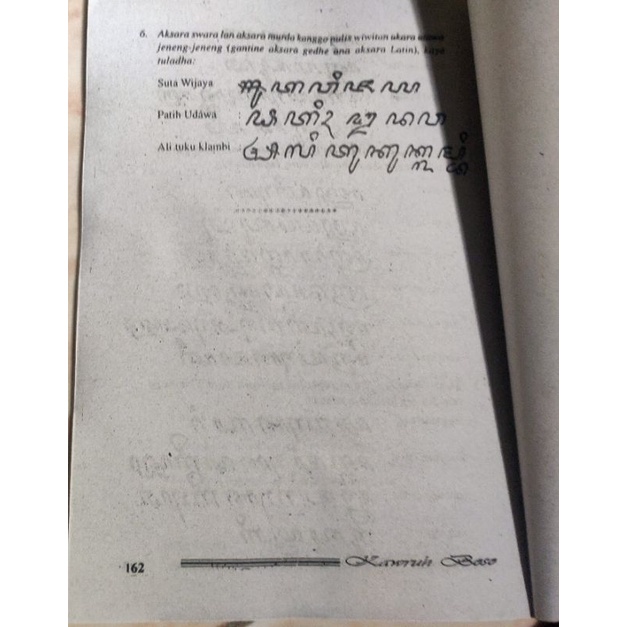 6. Aksara swara lan aksara murda kanggo nulis wiwitan ukara utawa
jeneng-jeneng (gantine aksara gedhe ana aksara Latin), kaya
tuladha:
Suta Wijaya ꦯꦸꦠꦮꦶꦗꦪ
Patih Udawa : ꦦꦠꦶꦃ ꦈꦢꦮ
Ali tuku klambi : ꦄꦭꦶ ꦠꦸꦏꦸꦏ꧀ꦭꦩ꧀ꦧꦶ
162 Kawruh Boso